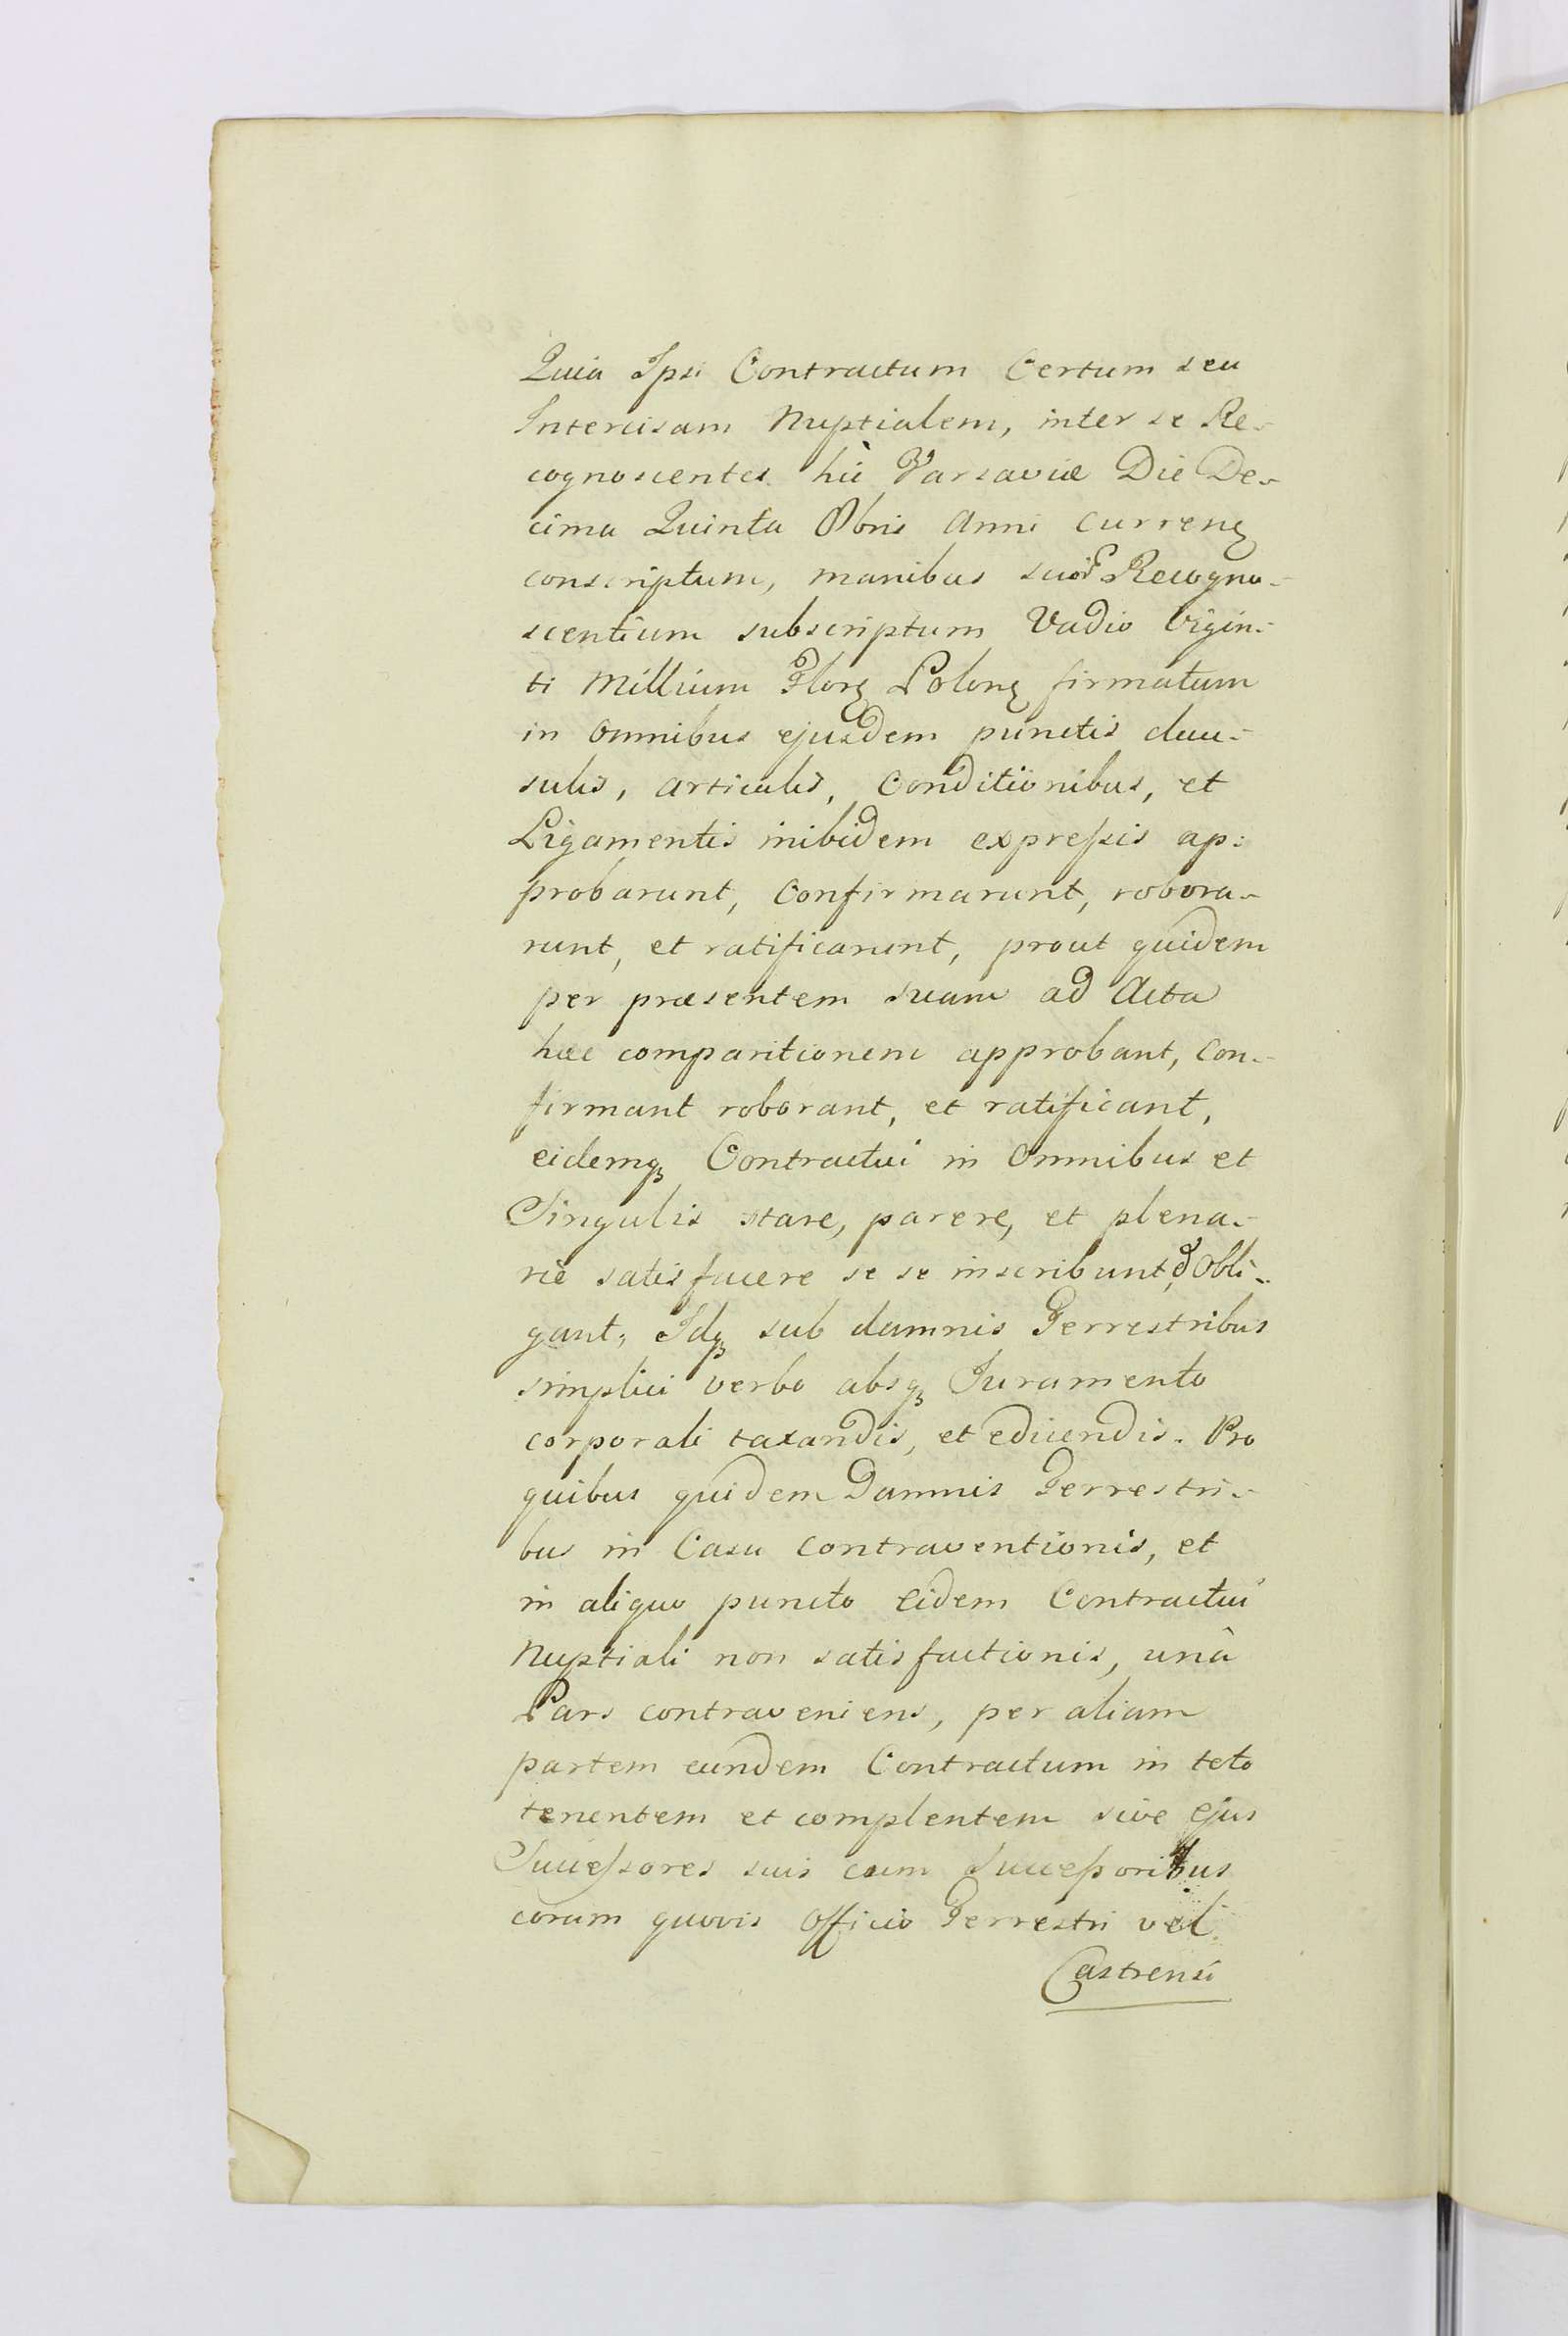 Quia Ipsi Contractum Certum seu
Intercisam Nuptialem, inter se Re-
cognoscentes hic Varsaviæ Die De-
cima Quinta Obris Anni Curren
conscriptum, manibus Recogno-
scentium subscriptum Vadio Vigin-
ti Millium Flor Polon firmatum
in Omnibus ejusdem punctis clau-
sulis, articulis, Conditionibus, et
Ligamentis inibidem expreſsis ap:
probarunt, Confirmarunt, robora-
runt, et ratificarunt, prout quidem
per præsentem suam ad Acta
hæc comparitionem approbant, Con-
firmant roborant, et ratificant,
eidemqꝫ Contractui in Omnibus et
Singulis stare, parere, et plena-
riè satisfacere se se inscribunt, & Obli-
gant, Idqꝫ sub damnis Terrestribus
simplici verbo absqꝫ Juramento
corporali taxandis, et edicendis. Pro
quibus quidem Damnis Terrestri-
bus in Casu contraventionis, et
in aliquo puncto Eidem Contractui
Nuptiali non satisfactionis, unà
Pars contraveniens, per aliam
partem eundem Contractum in toto
tenentem et complentem sive ejus
Succeſsores suis cum Succeſsoribus
coram quovis Officio Terrestri vel
Castrensi